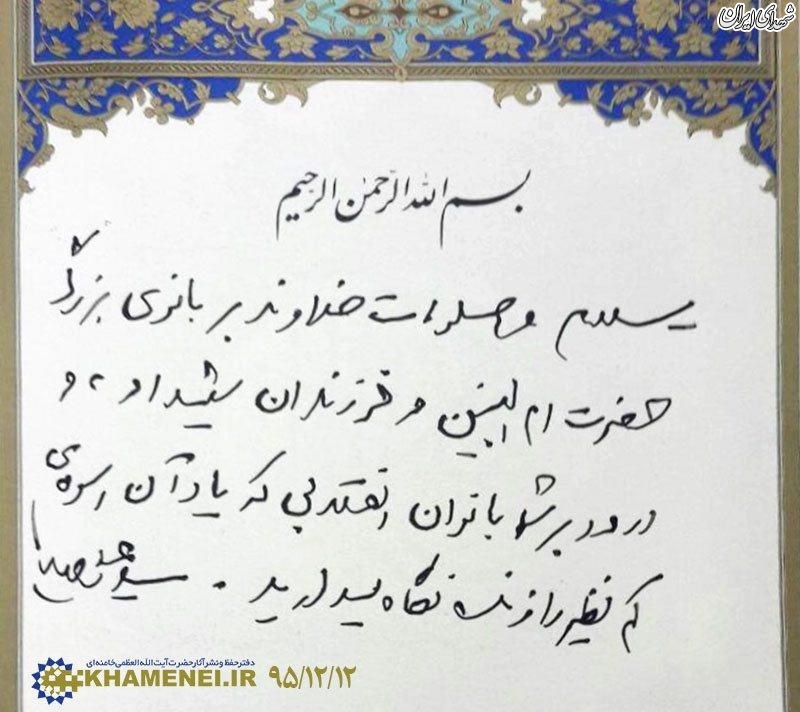 شهدای ایران
بسم الله الرحمن الرحیم
سلام و صلوات خداوند بر بانوی بزرگ
حضرت ام البنین و فرزندان شهید او، و
درود بر شما بانوان انقلابی که یاد آن اسوه‌ی
کم نظیر را زنده نگاه میدارید.
دفتر حفظ و نشر آثار حضرت آیت الله العظمی خامنه‌ای
KHAMENEI.IR ۹۵/۱۲/۱۲